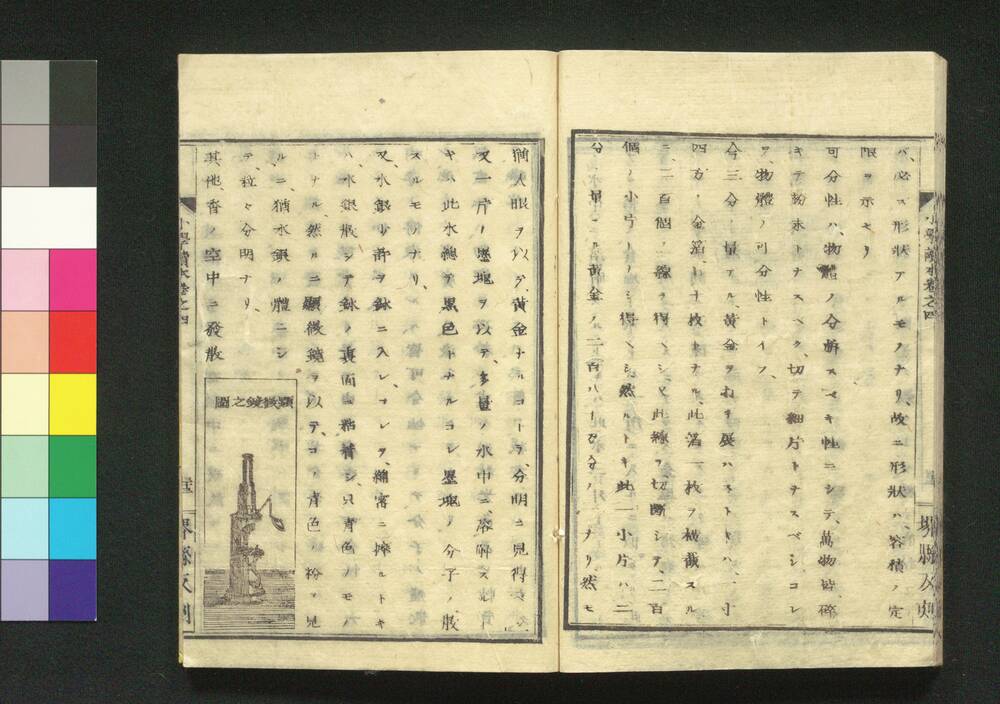 バ、必ス形狀アルモノナリ、故ニ形狀ハ、容積ノ定
限ヲ示セリ
可分性ハ、物體ノ分解スベキ性ニシテ、萬物皆碎
キテ粉末トナスベク、切テ細片トナスベシコレ
ヲ、物體ノ可分性トイフ、
今三分ノ量アル、黄金ヲ
四方ノ金箔トナル、此箔一枚ヲ横截スル
ニ、二百個ノ線ヲ得ベシ又此線ヲ切斷シテ二百
個ノ小片トナシ得ベシ、然ルトキ此一小片ハ二
分ノ量アル黄金ノ ナリ然モ
猶人眼ヲ以テ、黄金ナルコトヲ、分明ニ見得
又一片ノ墨塊ヲ以テ、多量ノ水中ニ、溶解スル
キハ此水總テ黒色トナルコレ墨塊ノ分子ノ、散
スルモノナリ、
又、水銀少許ヲ鉢ニ入レ、コレヲ、細密ニ搾ルトキ
ハ、水銀散シテ鉢ノ裏面ニ粘着シ、只青色ノモノ
トナル、然ルニ顯微鏡ヲ以テ、コノ青色ノ粉ヲ見
ルニ、猶水銀ノ體ニシ
テ、粒々分明ナリ、
其他、香ノ空中ニ發散
顯微鏡之圖
小學讀本卷之四
堺縣